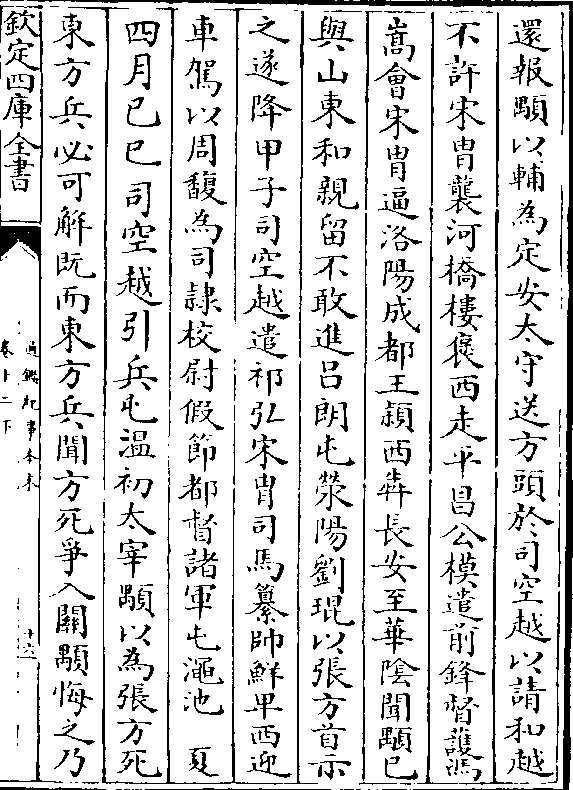 還報顒以輔為定安太守送方頭於司空越以請和越
不許宋胄襲河橋樓褒西走平昌公模遣前鋒督護馮
嵩會宋胄逼洛陽成都王穎西奔長安至華陰聞顒已
與山東和親留不敢進呂朗屯滎陽劉琨以張方首示
之遂降甲子司空越遣祁弘宋胄司馬纂帥鮮卑西迎
車駕以周馥為司隷校尉假節都督諸軍屯澠池　夏
四月已巳司空越引兵屯温初太宰顒以為張方死
東方兵必可解既而東方兵聞方死爭入關顒悔之乃
欽定四庫全書
通鑑紀事本末
卷十二下
十六